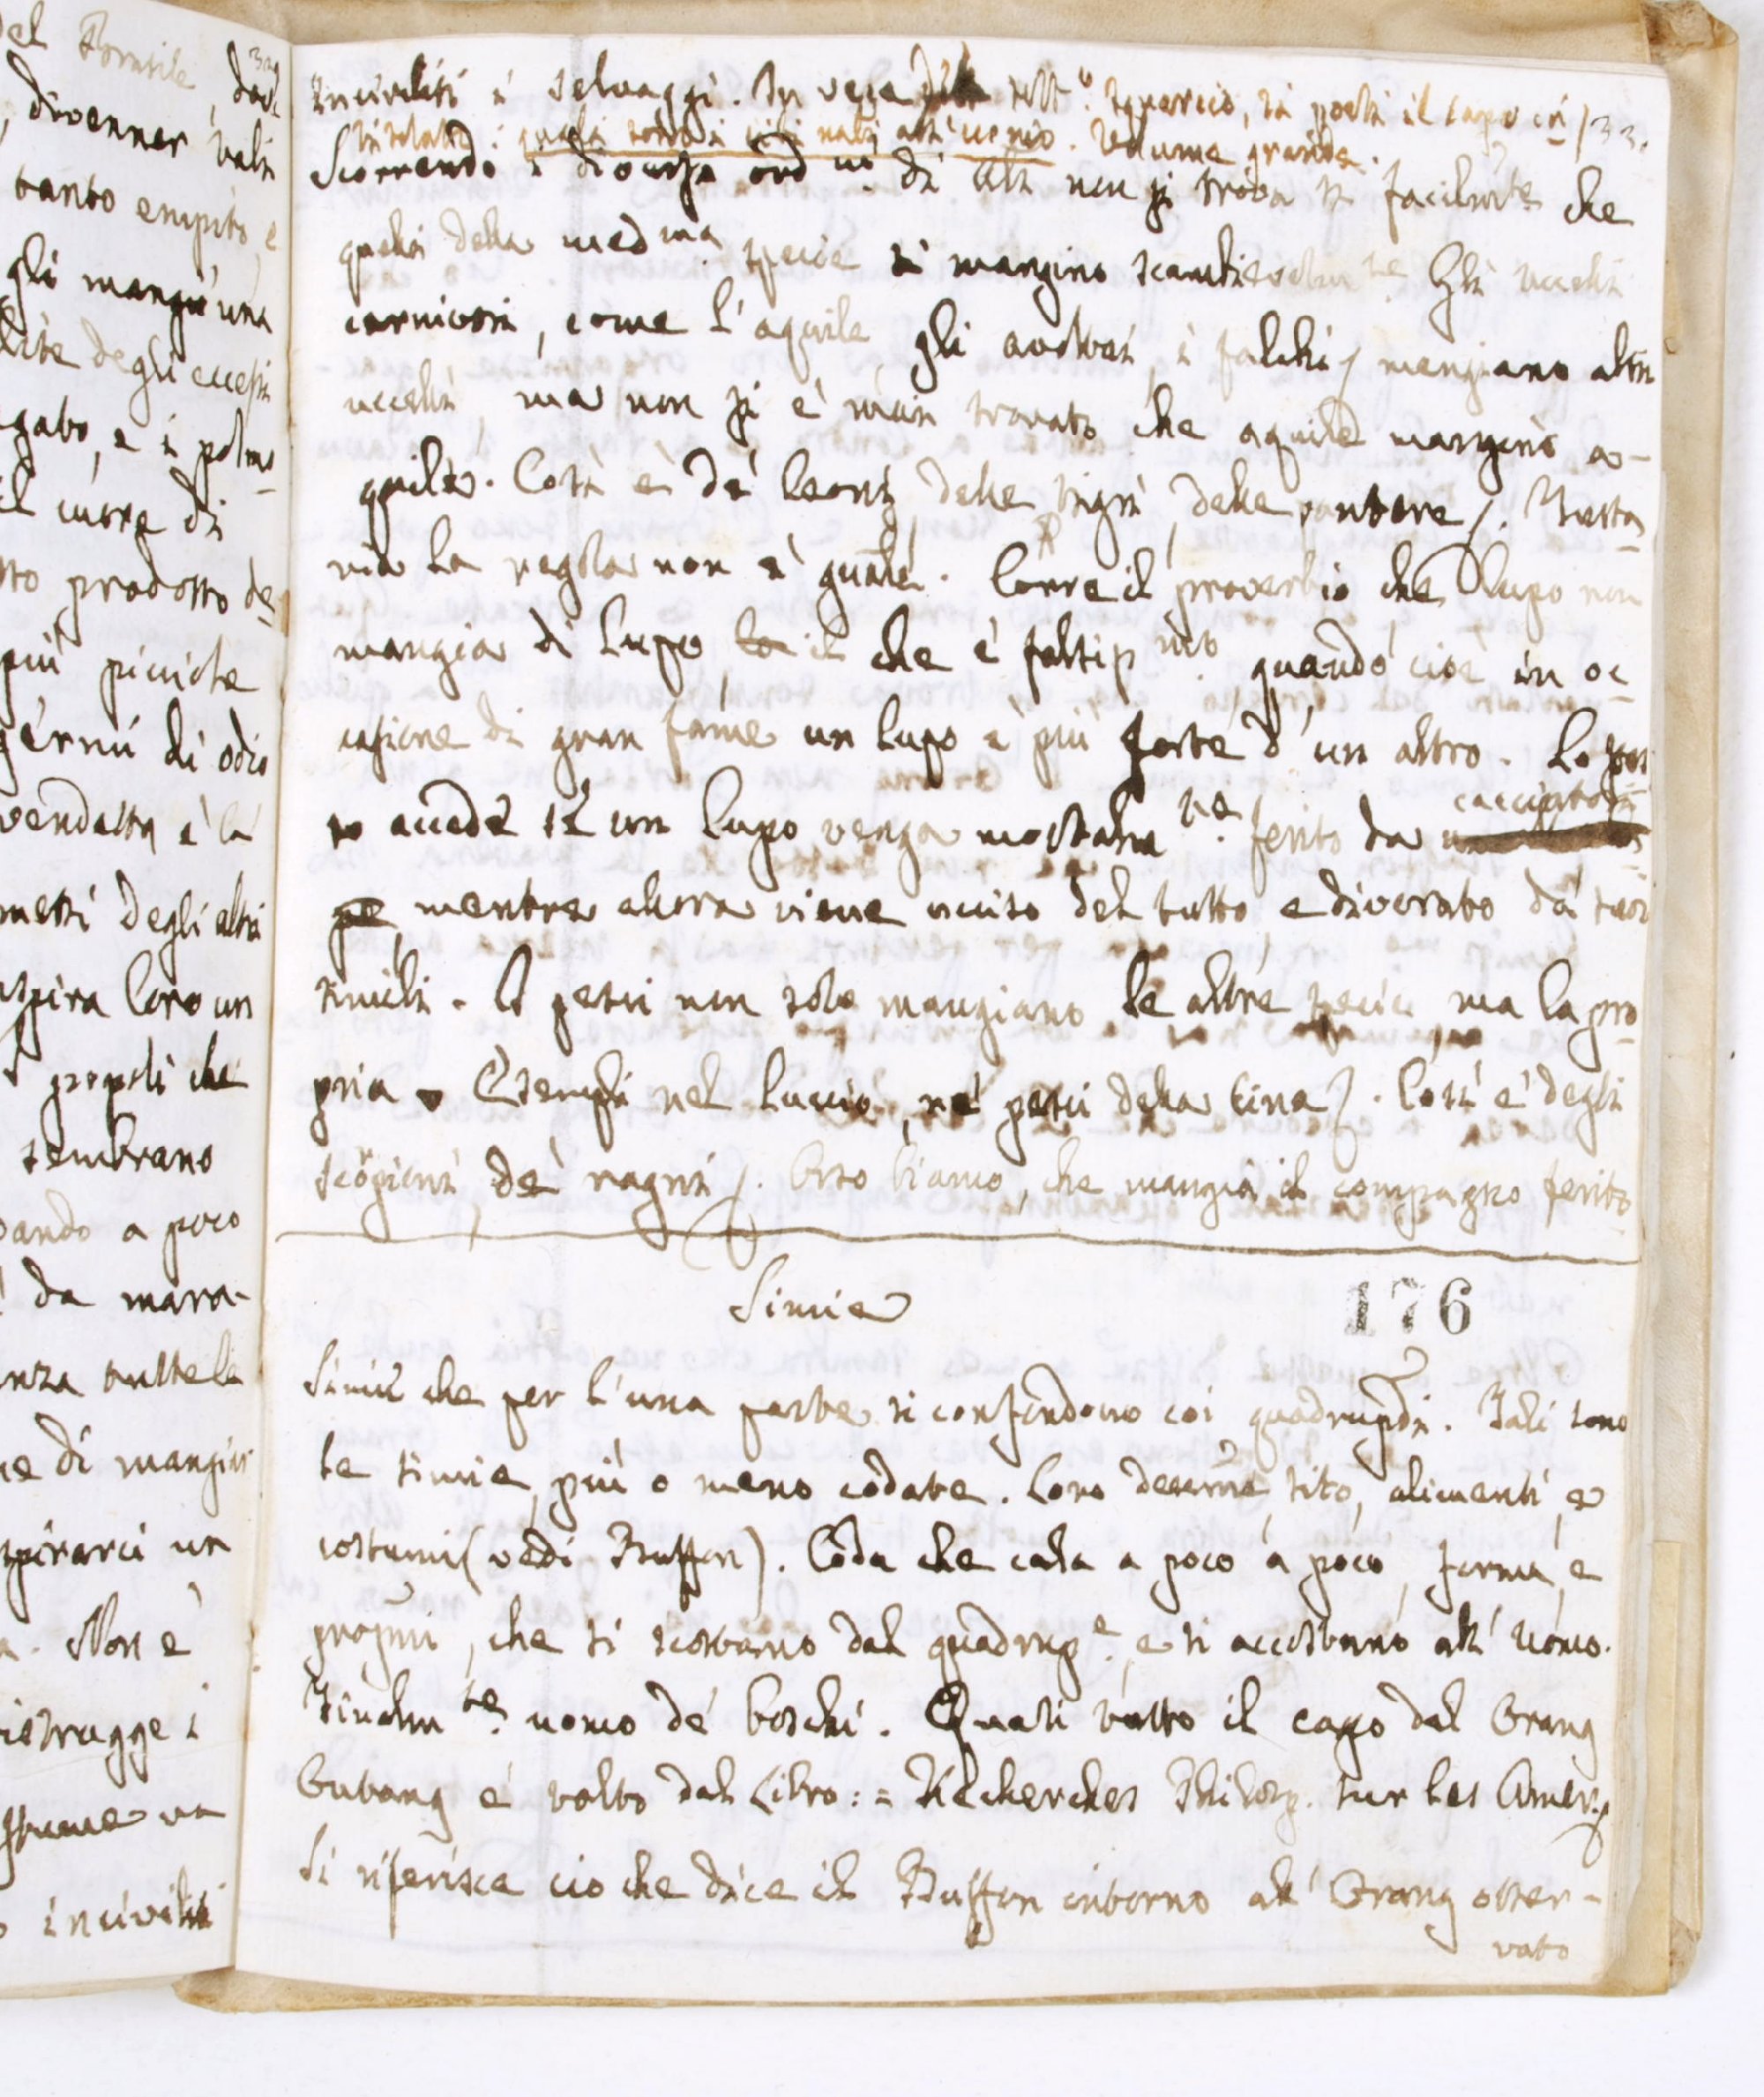 del Brasile, dove
, divenner vali
tanto empito, e
gli mangiò una
degli eccessi
gato, e i polmo
il cuore di
prodotto de
più picciole
di odio
vendetta è la
messi degli altri
spira loro un
popoli che
sembrano
ando a poco
da mara-
nza tutte le
ne di mangiar
spirarci un
. Non è
istrugge i
un
inciviliti
inciviliti i selvaggi. In vece squarcio, si ponga il capo in 33.
intitolato: quali sono i cibi nati all'uomo. Volume grande.
Scorrendo i diversi ordni di non si trova sì facilmte che
quelli della medma specie si mangino scambievolmte. Gli uccelli
carnivori, come l'aquile, gli avoltoi, i falchi / mangiano altri
uccelli, ma non si è mai trovato che aquile mangino a-
quile. Così è de' leoni, delle tigri, delle pantere /. Tutta-
via la regola non è gnãle. Corre il proverbio che lupo non
mangia di lupo la il che è falsissmo quando cioè in oc-
casione di gran fame un lupo è più forte d'un altro. Lo stes
so accade se un lupo venga mortalmte ferito da cacciatori
pe mentre allora viene ucciso del tutto e divorato da' suoi
simili. I pesci non solo mangiano le altre specie ma la pro-
pria. Esempi nel luccio, ne' pesci della tina /. Così è degli
scorpioni, de' ragni /. Orso bianco, che mangia il compagno ferito
Simie
176
Simie che per l'una parte si confondono coi quadrupdi. Tali sono
le simie, più o meno codate. Loro descrne, sito, alimenti, e
costumi (vedi Buffon). Coda che cala a poco a poco, forma, e
, che si scostano dal quadrupe, e si accostano all'uomo.
Finalmte uomo de' boschi. Quasi tutto il capo dal Orang
Outang è tolto dal Libro: = Recherches Philosp. sur les Amer.
Si riferisce ciò che dice il Buffon intorno all' Orang osser-
vato